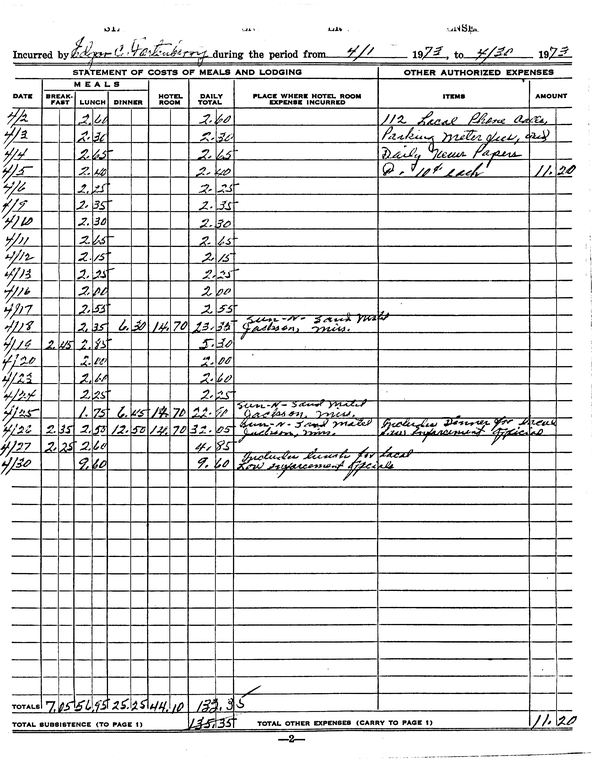 Incurred by Edgar C. Fortenberry during the period from 4/1 1973, to 4/30 1973
STATEMENT OF COSTS OF MEALS AND LODGING OTHER AUTHORIZED EXPENSES
MEALS
DATE BREAK-FAST LUNCH DINNER HOTEL ROOM DAILY TOTAL PLACE WHERE HOTEL ROOM EXPENSE INCURRED ITEMS AMOUNT
4/2 2.60 2.60 112 Local Phone
4/3 2.30 2.30 Parking Meter
4/4 2.65 2.65 Daily News Papers
4/5 2.40 2.40 10¢ each 11.20
4/6 2.25 2.25
4/9 2.35 2.35
4/10 2.30 2.30
4/11 2.65 2.65
4/12 2.15 2.15
4/13 2.25 2.25
4/16 2.00 2.00
4/17 2.55 2.55
4/18 2.35 6.30 14.70 23.35 Sun-N-Sand Motel Jackson, Miss.
4/19 2.45 2.85 5.30
4/20 2.00 2.00
4/23 2.60 2.60
4/24 2.25 2.25
4/25 1.75 6.45 14.70 22.90 Sun-N-Sand Motel Jackson, Miss.
4/26 2.35 2.50 12.50 14.70 32.05 Sun-N-Sand Motel Jackson, Miss. Includes Dinner for Law Enforcement Official
4/27 2.25 2.60 4.85
4/30 9.60 9.60 Includes lunch for Local Law enforcement officials
TOTALS 7.05 56.95 25.25 44.10 132.35
TOTAL SUBSISTENCE (TO PAGE 1) 135.35 TOTAL OTHER EXPENSES (CARRY TO PAGE 1) 11.20
—2—